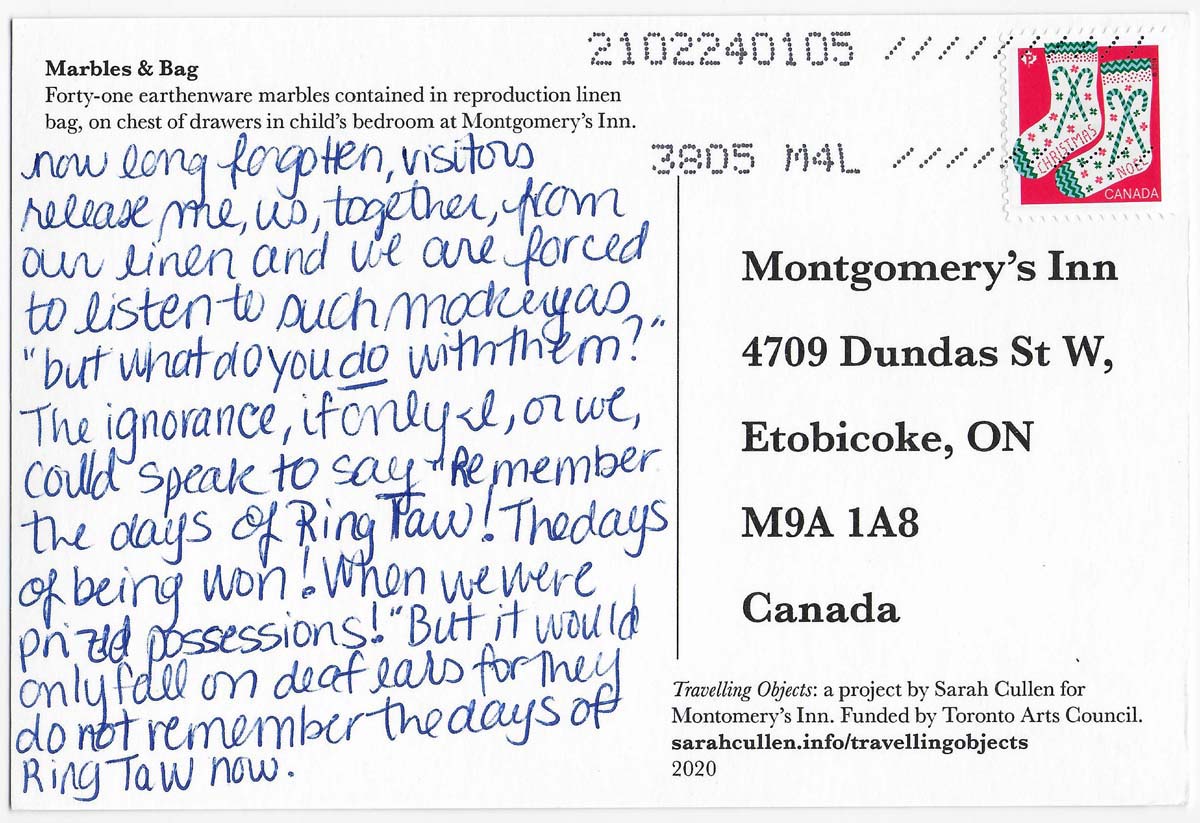 Marbles & Bag
Forty-one earthenware marbles contained in reproduction linen
bag, on chest of drawers in child's bedroom at Montgomery's Inn.
now long forgotten, visitors
release me, us, together, from
our linen and we are forced
to listen to such mockery as
"but what do you do with them?"
The ignorance, if only I, or we,
could speak to say "Remember
the days of Ring Taw! The days
of being won! When we were
prized possessions!" But it would
only fall on deaf ears for they
do not remember the days of
Ring Taw now.
2102240105 //////////
3805 M4L //////////
CHRISTMAS
NOËL
CANADA
P
Montgomery's Inn
4709 Dundas St W,
Etobicoke, ON
M9A 1A8
Canada
Travelling Objects: a project by Sarah Cullen for
Montomery's Inn. Funded by Toronto Arts Council.
sarahcullen.info/travellingobjects
2020